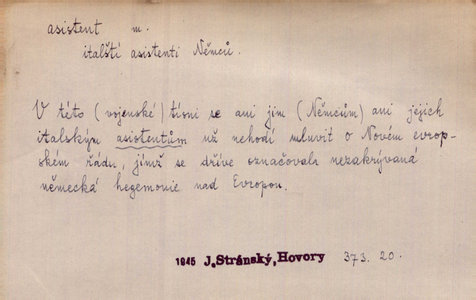 asistent m.
italští asistenti Němců.
V této (vojenské) tísni se ani jim (Němcům) ani jejich
italským asistentům už nehodí mluvit o Novém evrop-
ském řádu, jímž se dříve označovala nezakrývaná
německá hegemonie nad Evropou.
1945 J.Stránský, Hovory 373. 20.